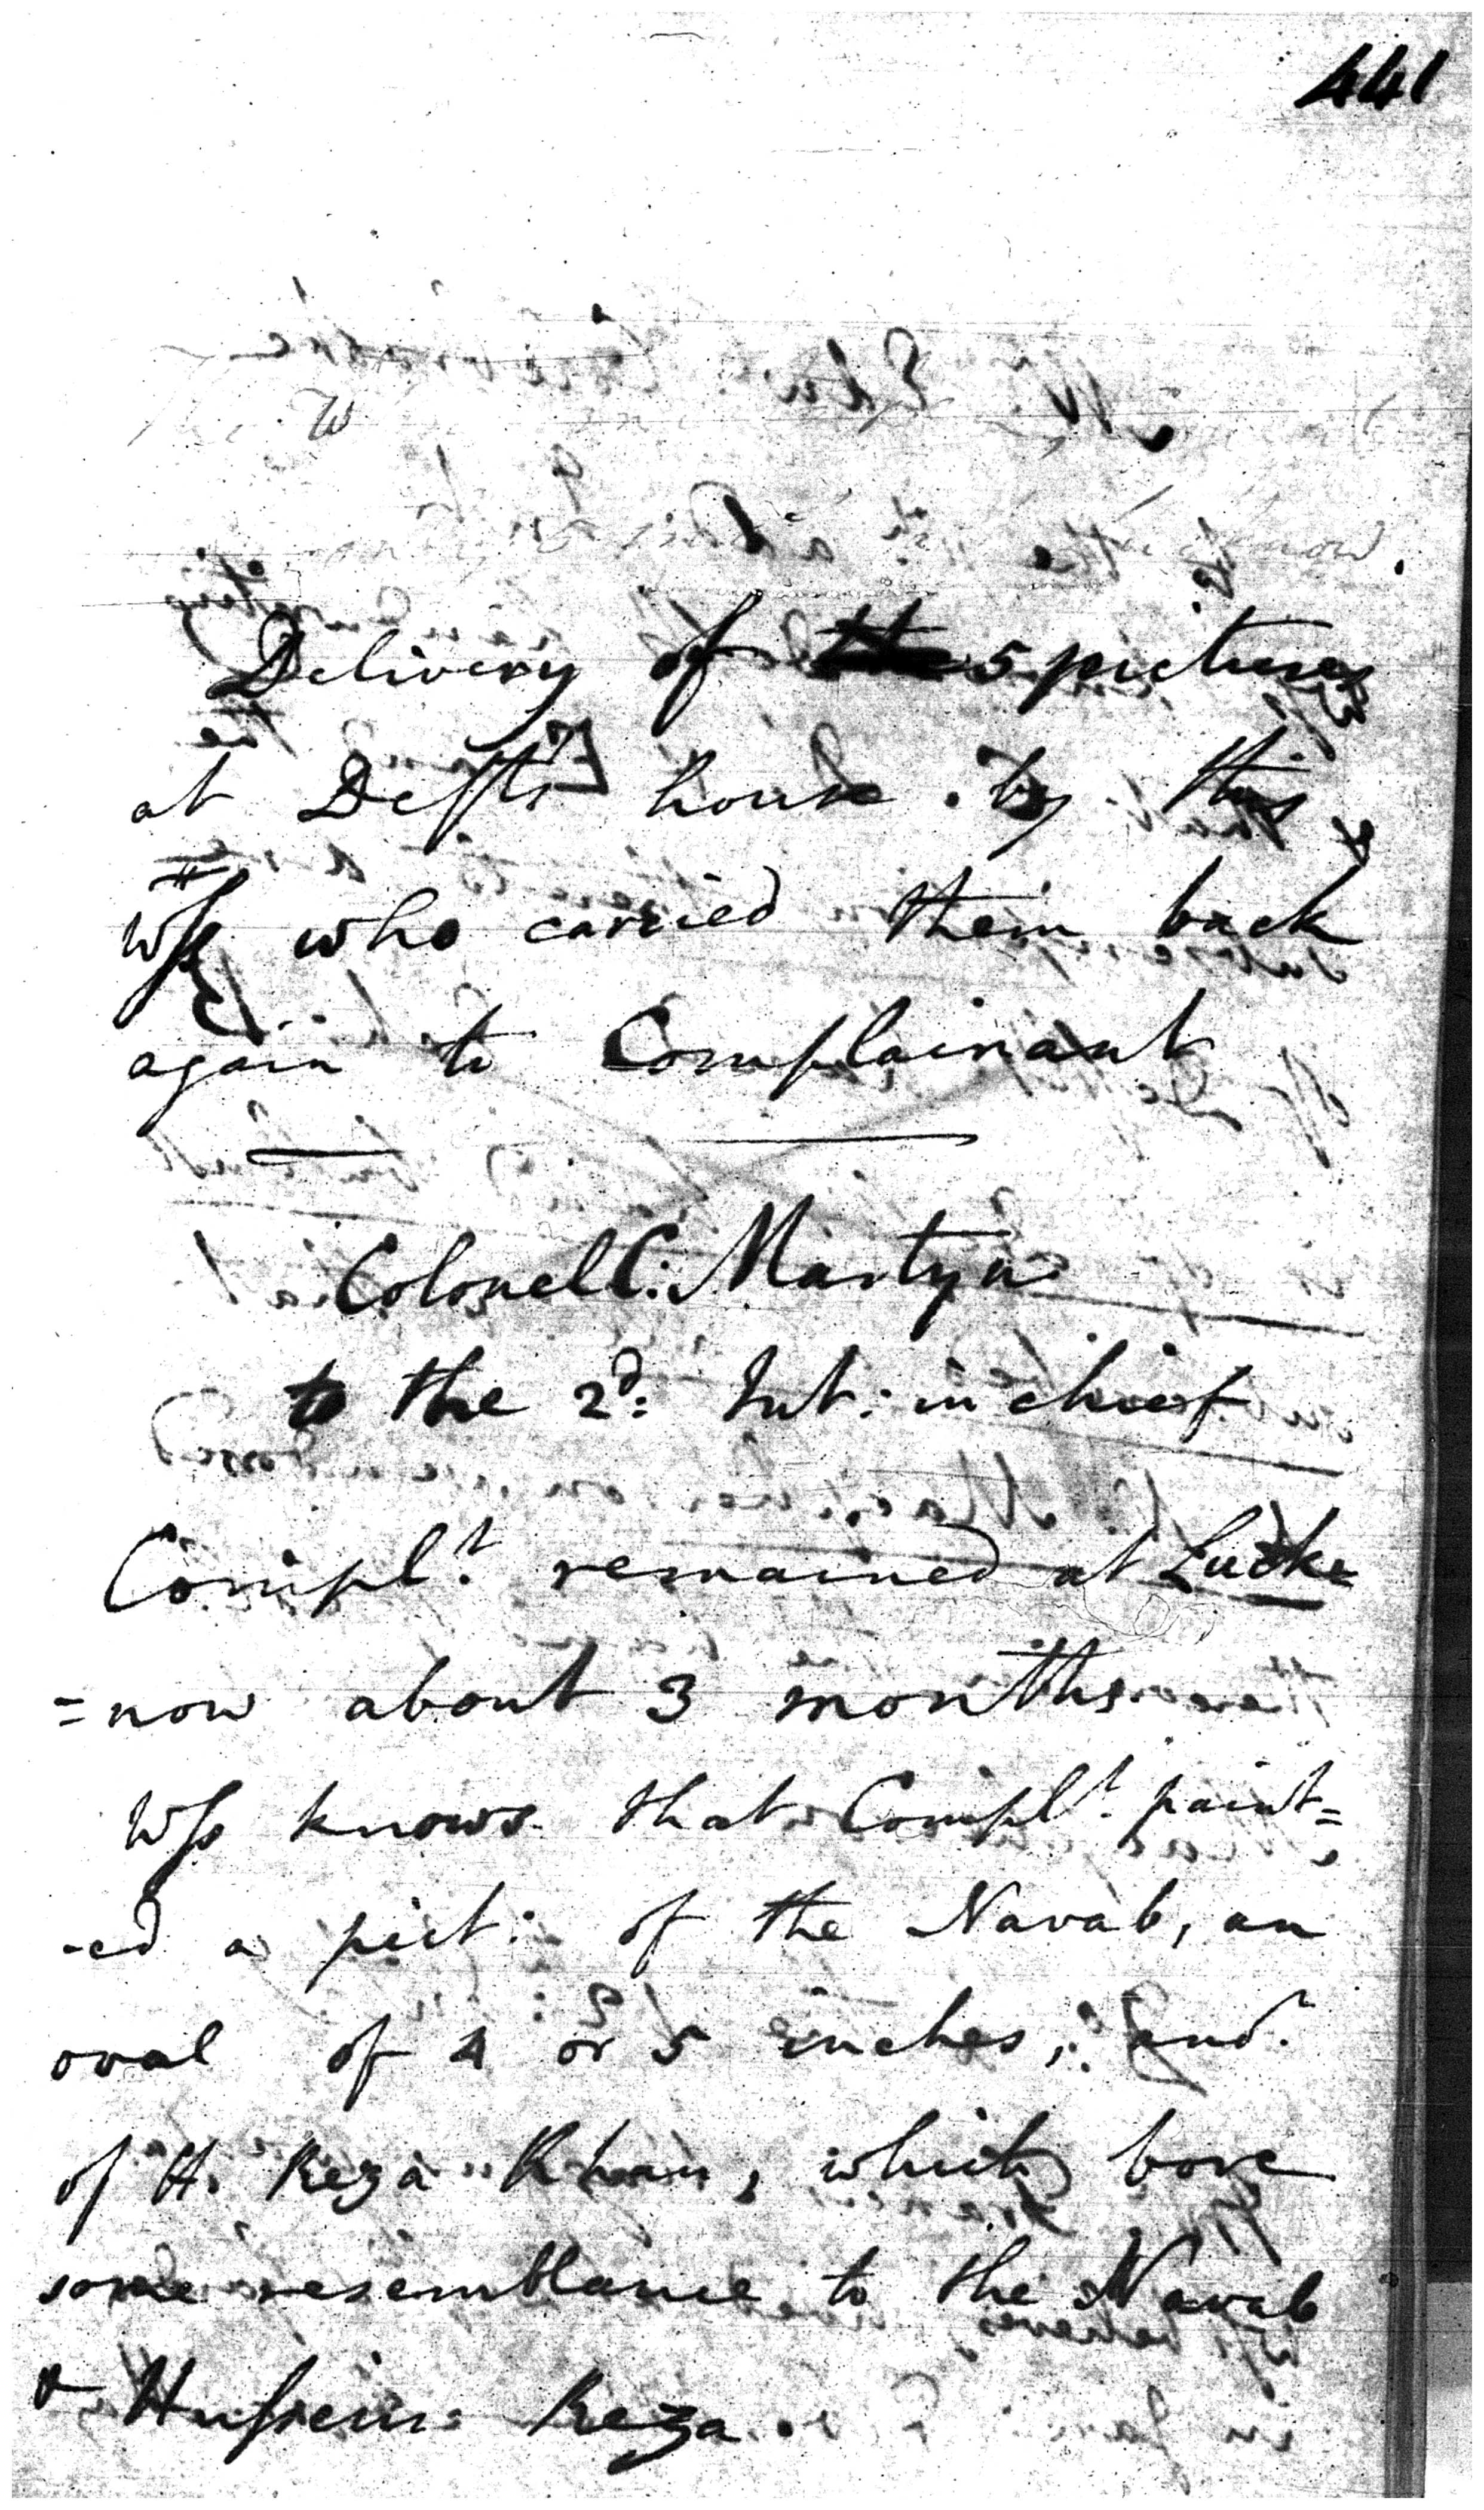 441
Delivery of the 5 pictures
at Defts house by this
Wss who carried them back
again to Complainant
Colonel C: Martyn
to the 2d: Int: in chief
Complt. remained at Luck=
=now about 3 months
Wss knows that Complt. paint=
-ed a pict: of the Navab, an
oval of 4 or 5 inches, and
of H. Reza Khan, which bore
some resemblance to the Navab
& Hussein Reza